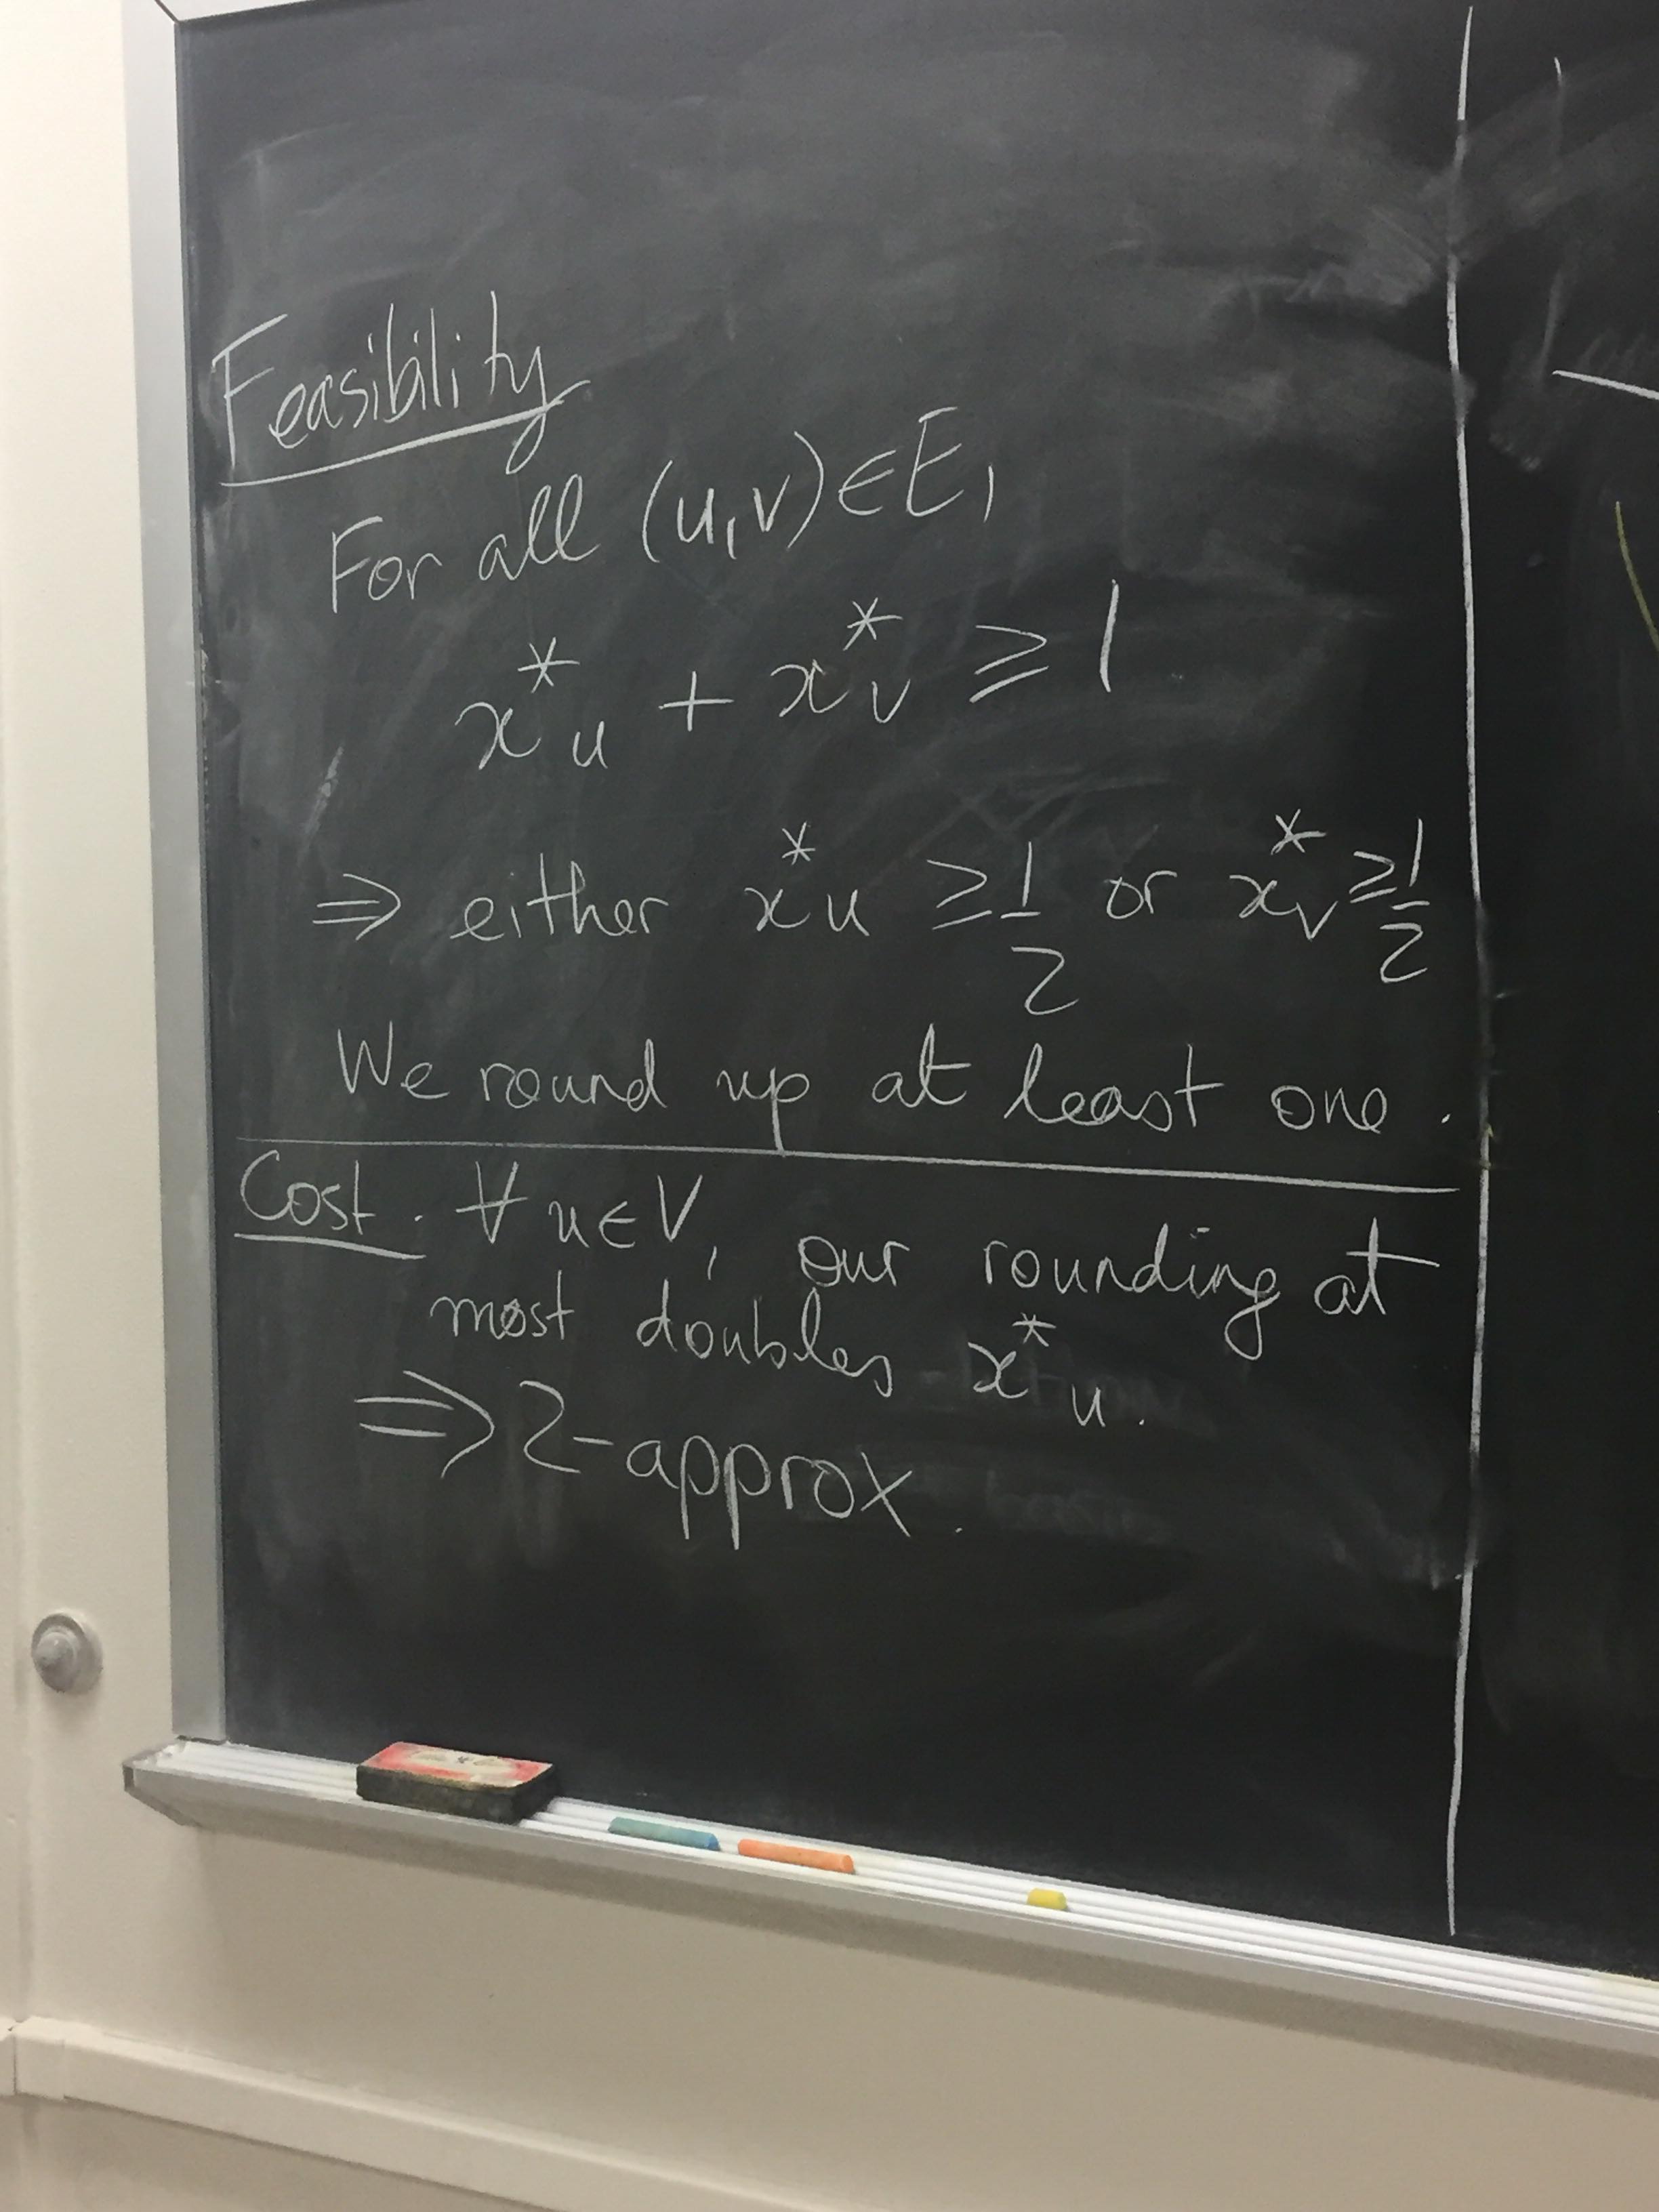 Feasibility
For all (u,v)∈E,
x*u + x*v ≥ 1
⇒ either x*u ≥ 1/2 or x*v ≥ 1/2
We round up at least one.
Cost. ∀ u∈V, our rounding at
most doubles x*u.
⇒ 2-approx.